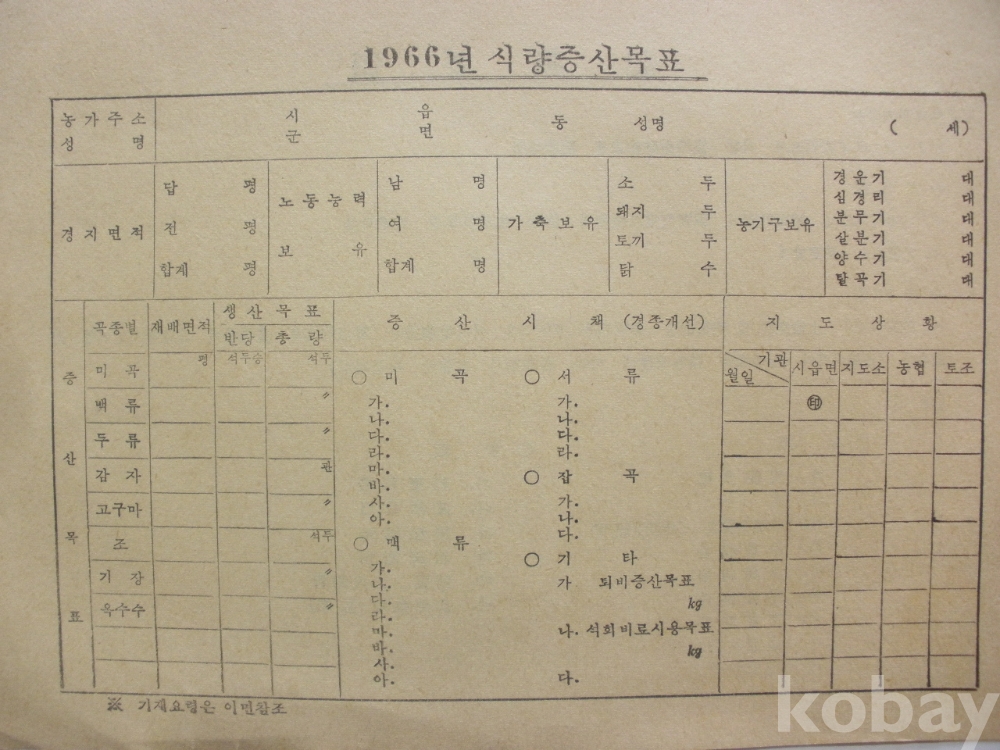 1966년 식량증산목표
농가주소 시 읍
성명 군 면 동 성명 ( 세)
경지면적 답 평 전 평 합계 평
노동능력 보유 남 명 여 명 합계 명
가축보유 소 두 돼지 두 토끼 두 닭 수
농기구보유 경운기 대
심경리 대
분무기 대
살분기 대
양수기 대
탈곡기 대
증산목표
곡종별 재배면적 생산목표 반당 총량
증산시책 (경종개선)
지도상황
월일 기관 시읍면 지도소 농협 토조
미곡 평 석두승 석두
맥류 〃
두류 〃
감자 관
고구마 〃
조 석두
기장 〃
옥수수 〃
○ 미곡
가.
나.
다.
라.
마.
바.
사.
아.
○ 맥류
가.
나.
다.
라.
마.
바.
사.
아.
○ 서류
가.
나.
다.
라.
○ 잡곡
가.
나.
다.
○ 기타
가 퇴비증산목표
kg
나. 석회비료시용목표
kg
다.
㊞
※ 기재요령은 이면참조
kobay